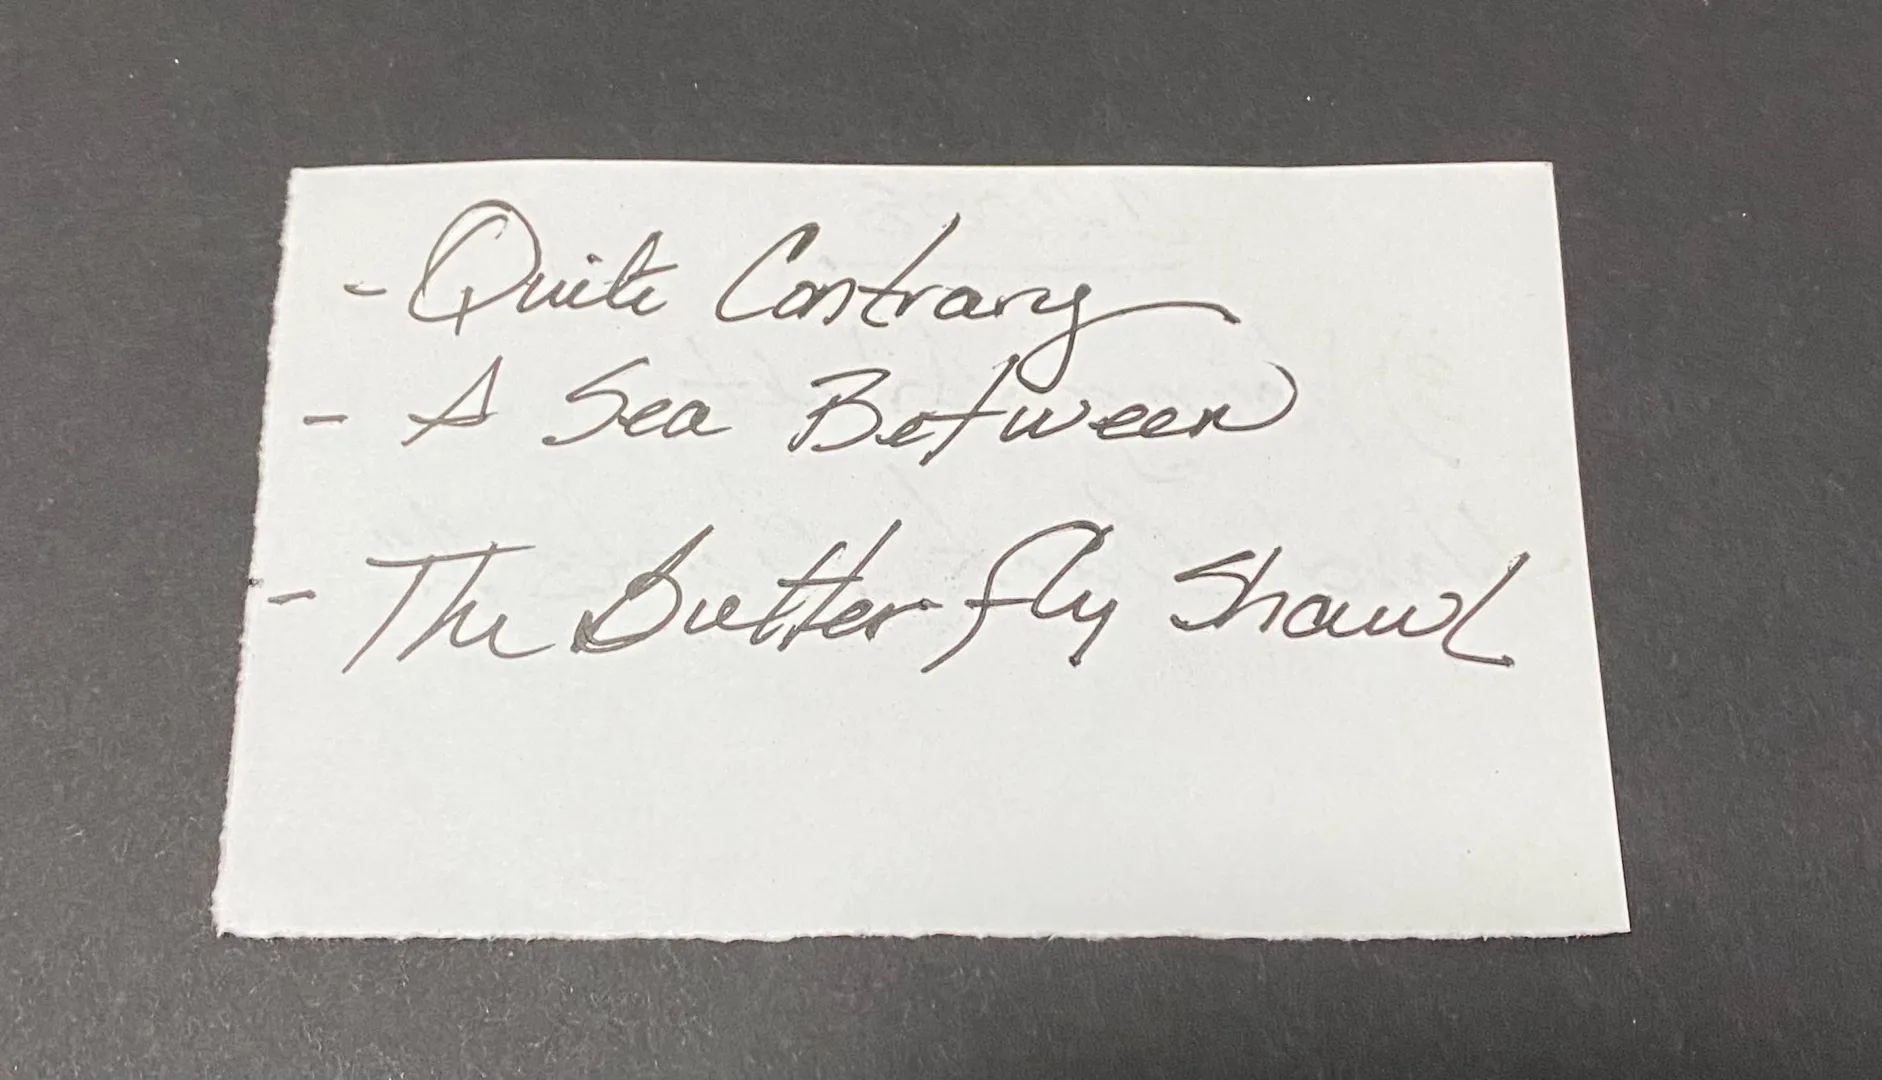 - Quite Contrary
- A Sea Between
- The Butterfly Shawl